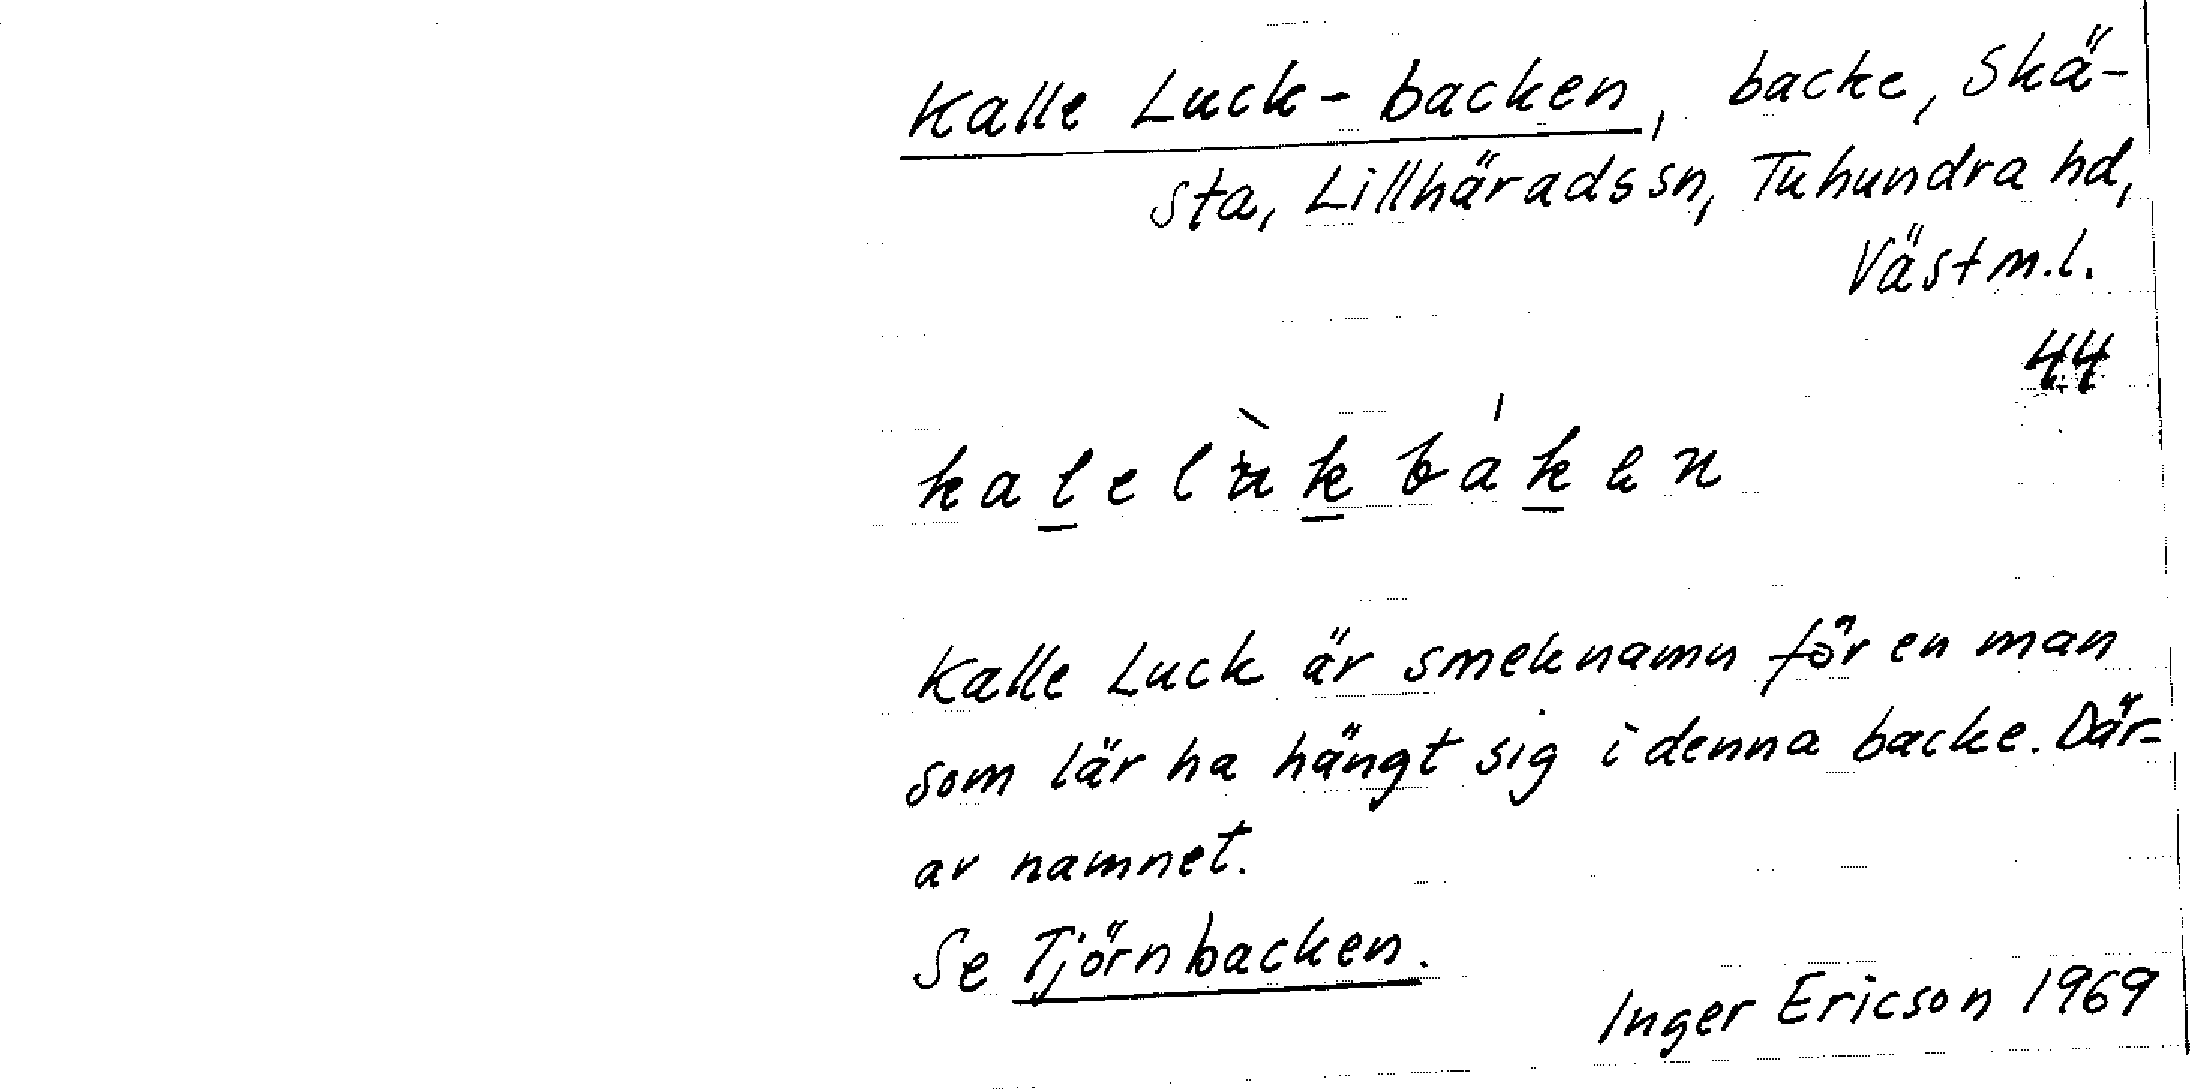 Kalle Luck-backen, backe, Skä-
sta, Lillhärads sn, Tuhundra hd,
Västm.l.
44
kalelùkbáken
Kalle Luck är smeknamn för en man
som lär ha hängt sig i denna backe. Där-
av namnet.
Se Tjörnbacken.
Inger Ericson 1969